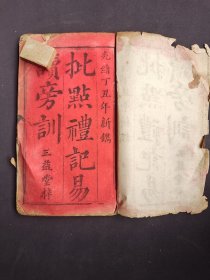 光緒丁丑年新鐫
批點禮記易
讀旁訓
三益堂梓